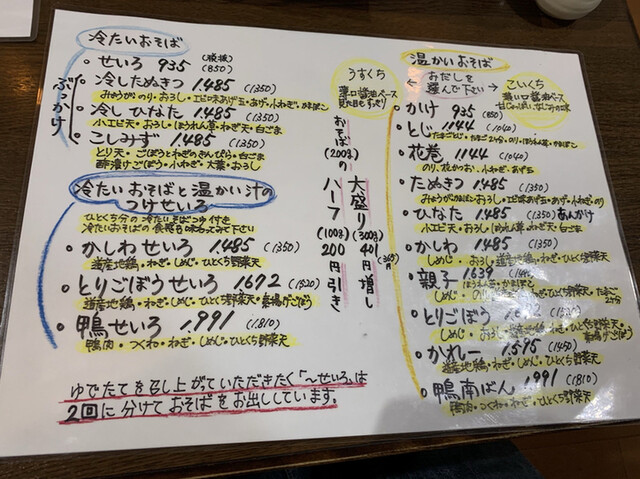 冷たいおそば
・せいろ 935 (税抜)(850)
ぶっかけ
・冷したぬきつ 1,485 (1350)
みょうが・のり・おろし・エビ味あげ玉・あげ・小ねぎ・かまぼこ
・冷し ひなた 1,485 (1350)
小エビ天・おろし・ほうれん草・ねぎ天・白ごま
・こしみず 1,485 (1350)
とり天・ごぼうとねぎのきんぴら・白ごま
酢漬けごぼう・小ねぎ・大葉・おろし
冷たいおそばと温かい汁の
つけせいろ
ひとくち分の冷たいそばつゆ付き
冷たいおそばの食感も味わえみ下さい
・かしわせいろ 1,485 (1350)
道産地鶏・ねぎ・しめじ・ひとくち野菜天
・とりごぼうせいろ 1,672 (1520)
道産地鶏・ねぎ・しめじ・ひとくち野菜天・素揚げごぼう
・鴨せいろ 1,991 (1,810)
鴨肉・つくね・ねぎ・しめじ・ひとくち野菜天
ゆでたてを召し上がっていただきたく「〜せいろ」は
2回に分けておそばをお出ししています。
うすくち
薄口醤油ベース
見た目もすっきり
おそばの(200g)
大盛り(300g) 401円増し (365円)
ハーフ(100g) 200円引き
温かいおそば
← おだしを選んで下さい →
こいくち
濃い口醤油ベース
・かけ 935 (850)
・とじ 1144 (1040)
・花巻 1144 (1040)
のり・花かつお・小ねぎ・あげ玉
・たぬきつ 1,485 (1350)
・ひなた 1,485 (1350) あんかけ
小エビ天・おろし・ほうれん草・ねぎ天・白ごま
・かしわ 1,485 (1350)
しめじ・おろし・道産地鶏・ねぎ・ひとくち野菜天
・親子 1639
・とりごぼう
・かれー 1,595 (1450)
道産地鶏・ねぎ・しめじ・ひとくち野菜天
・鴨南ばん 1,991 (1,810)
鴨肉・つくね・ねぎ・しめじ・ひとくち野菜天